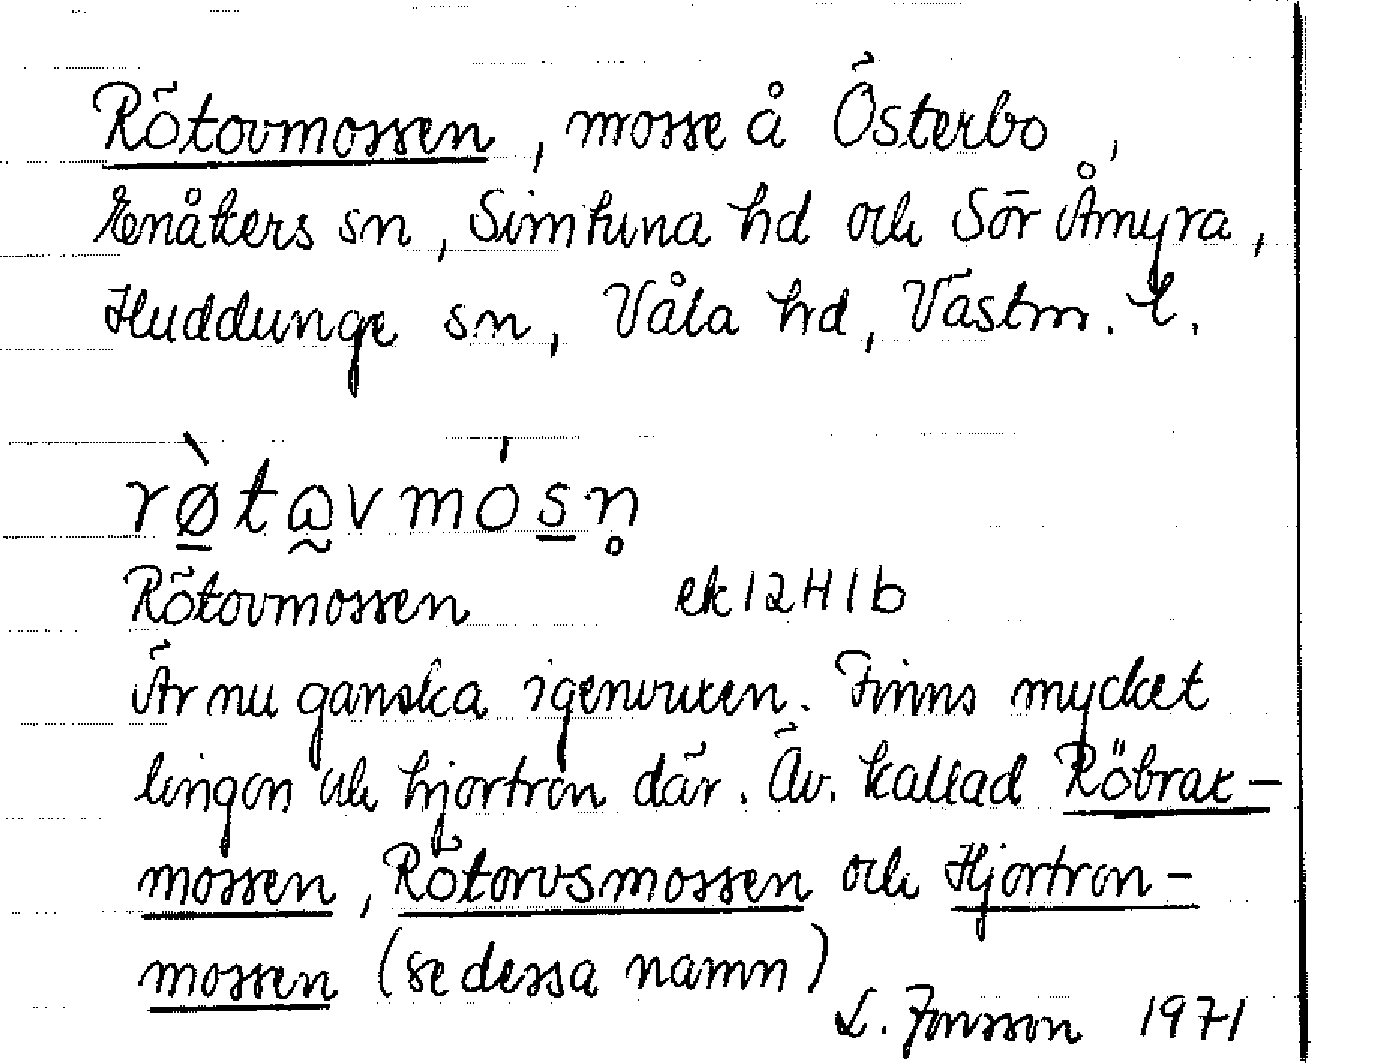 Rötovmossen, mosse å Österbo,
Enåkers sn, Simtuna hd och Sör Åmyra,
Huddunge sn, Våla hd, Västm. l.
rø̀tωvmósn̥
Rötovmossen ek 12H1b
Är nu ganska igenvuxen. Finns mycket
lingon och hjortron där. Äv. kallad Röbrak-
mossen, Rötorvsmossen och Hjortron-
mossen (se dessa namn)
L. Jonsson 1971